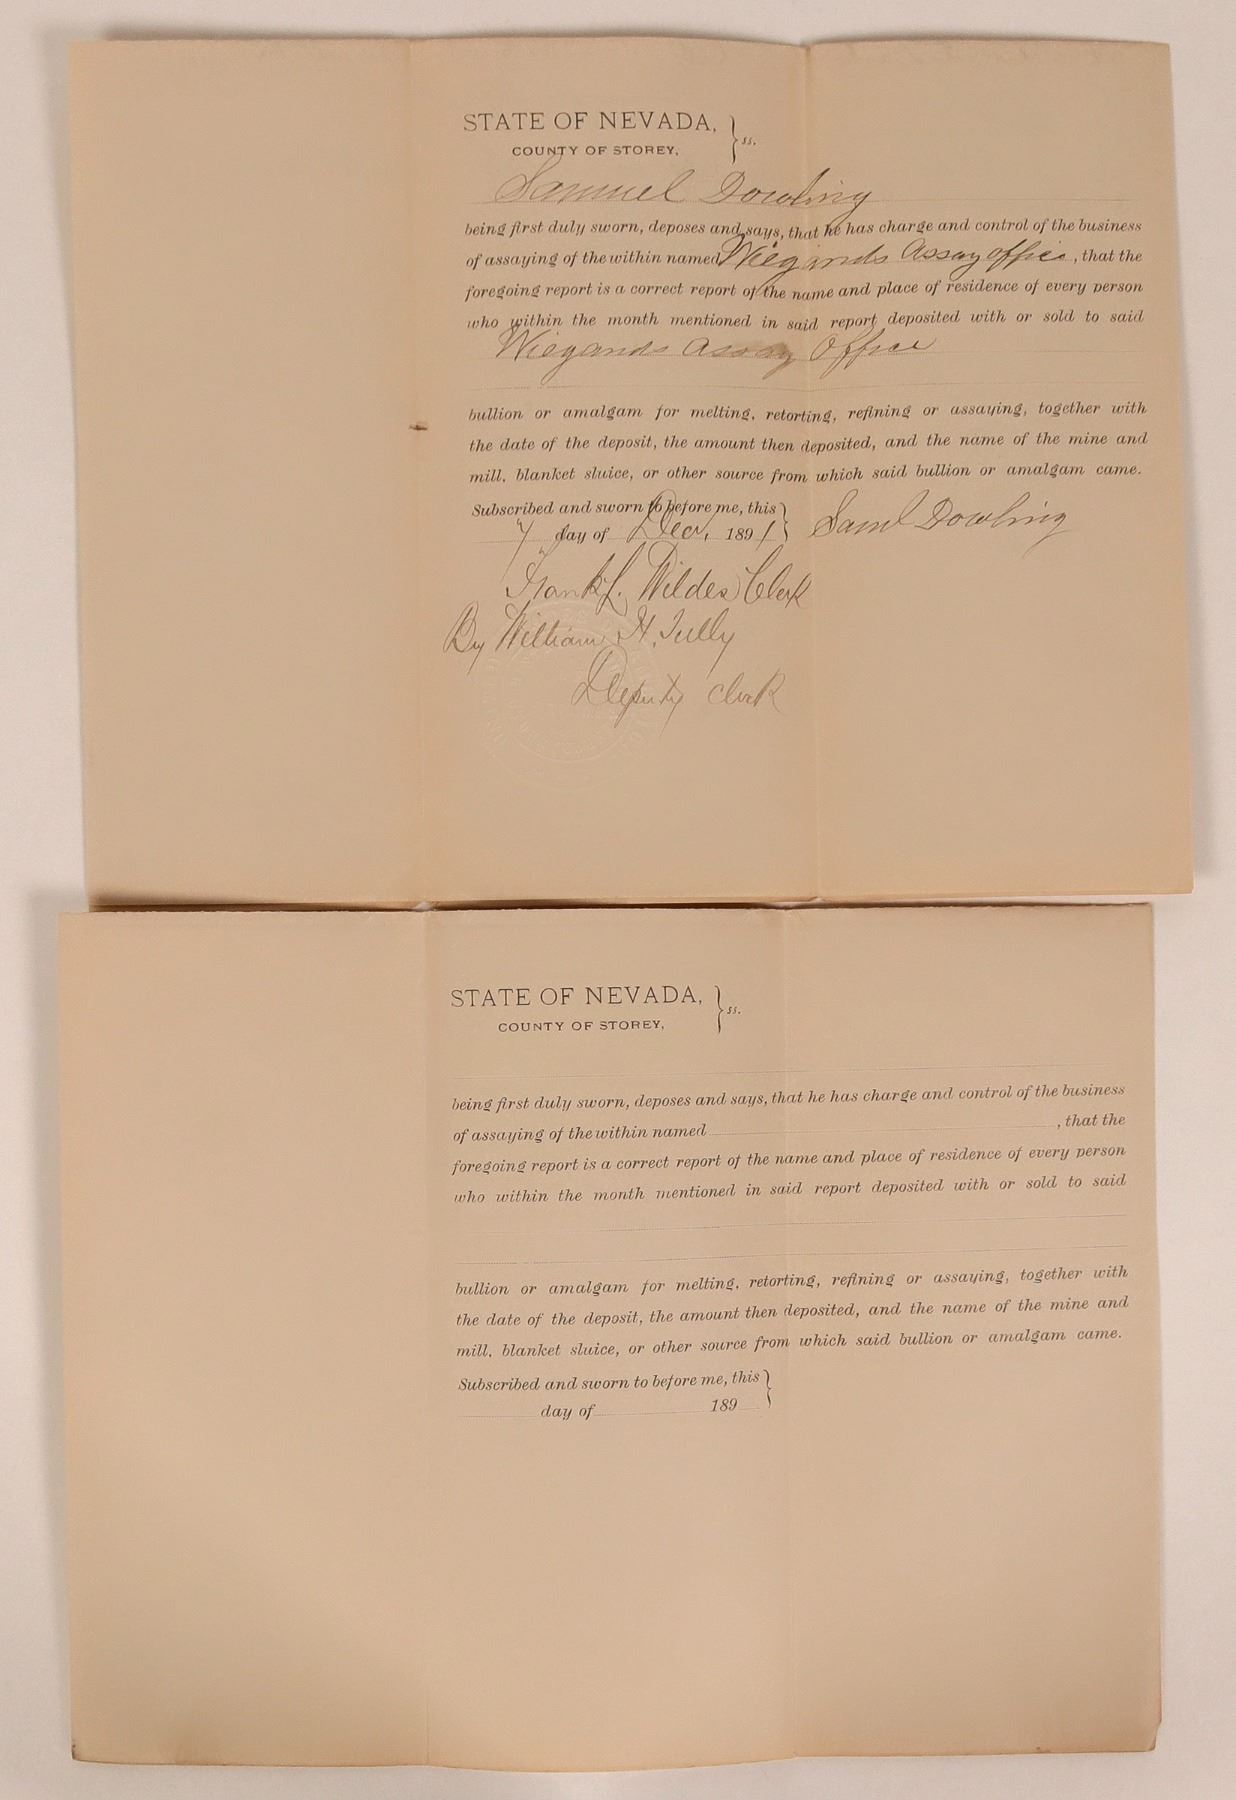 STATE OF NEVADA, } ss.
COUNTY OF STOREY,
Samuel Dowling
being first duly sworn, deposes and says, that he has charge and control of the business
of assaying of the within named Wiegands Assay office, that the
foregoing report is a correct report of the name and place of residence of every person
who within the month mentioned in said report deposited with or sold to said
Wiegands Assay Office
bullion or amalgam for melting, retorting, refining or assaying, together with
the date of the deposit, the amount then deposited, and the name of the mine and
mill, blanket sluice, or other source from which said bullion or amalgam came.
Subscribed and sworn to before me, this }
7 day of Dec, 1891 Saml Dowling
Frank L. Wildes Clerk
By William H. Tully
Deputy clerk
STATE OF NEVADA, } ss.
COUNTY OF STOREY,
being first duly sworn, deposes and says, that he has charge and control of the business
of assaying of the within named , that the
foregoing report is a correct report of the name and place of residence of every person
who within the month mentioned in said report deposited with or sold to said
bullion or amalgam for melting, retorting, refining or assaying, together with
the date of the deposit, the amount then deposited, and the name of the mine and
mill, blanket sluice, or other source from which said bullion or amalgam came.
Subscribed and sworn to before me, this }
day of 189